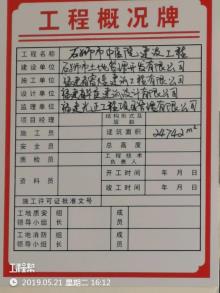 工程概况牌
工程名称 石狮市中医院建设工程
建设单位 石狮市土地管理开发有限公司
施工单位 福建省 建筑工程有限公司
设计单位 福建 建筑设计有限公司
监理单位 福建 工程项目管理有限公司
项目经理 结构形式及层数
施工员 建筑面积 24742m²
安全员 总高度
质检员 工程技术负责人
资料员 开工时间 年 月 日
竣工时间 年 月 日
施工许可证批准文号
工地质安领导小组 组长 成员
工地消防领导小组 组长 成员
工程帮
2019.05.21 星期二 16:12